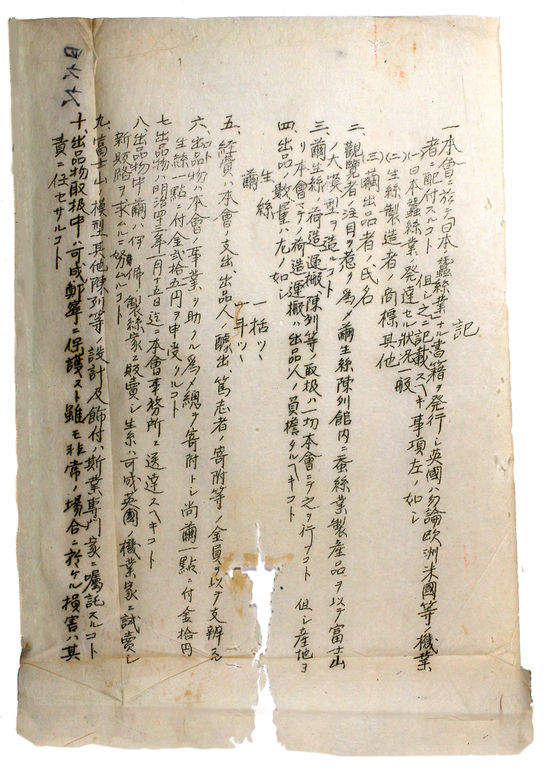 記
一 本會ニ於テ日本蠶絲業ナル書籍ヲ発行シ英國ハ勿論欧洲米國等ノ機業
者ニ配付スルコト 但シ之ニ記載スベキ事項左ノ如シ
(一)日本蠶絲業ノ発達セル状況一般
(二)生絲製造者ノ商標其他
(三)繭出品者ノ氏名
二 觀覽者ノ注目ヲ惹ク為メ繭生絲陳列館内ニ蚕絲業製産品ヲ以テ富士山
ノ大模型ヲ造ルコト
三 繭生絲ノ荷造運搬、陳列等ノ取扱ハ一切本會ニテ之ヲ行フコト 但シ産地ヨ
リ本會マテノ荷造運搬ハ出品人ノ負擔タルヘキコト
四 出品ノ數量ハ左ノ如シ
生絲 一括ツヽ
繭 一斗ツヽ
五、經費ハ本會ノ支出出品人ノ醵出、篤志者ノ寄附等ノ金員ヲ以テ支辨スルコト
六、出品物ハ本會ノ事業ヲ助クル為メ總テ寄附トシ尚繭一點ニ付金拾円
生絲一點ニ付金弐拾五円ヲ申受クルコト
七 出品物ハ明治四三年一月十五日迄ニ本會事務所ニ送達スヘキコト
八 出品物中繭ハ伊佛ノ製絲家ニ販賣シ生絲ハ可成英國ノ機業家ニ試賣シ
新販路ヲ求ムルニ努ムルコト
九、富士山ノ模型其他陳列等ノ設計及飾付ハ斯業専門家ニ囑託スルコト
十、出品物取扱中ハ可成鄭寧ニ保護スト雖モ非常ノ場合ニ於ケル損害ハ其
責ニ任セサルコト
四六六